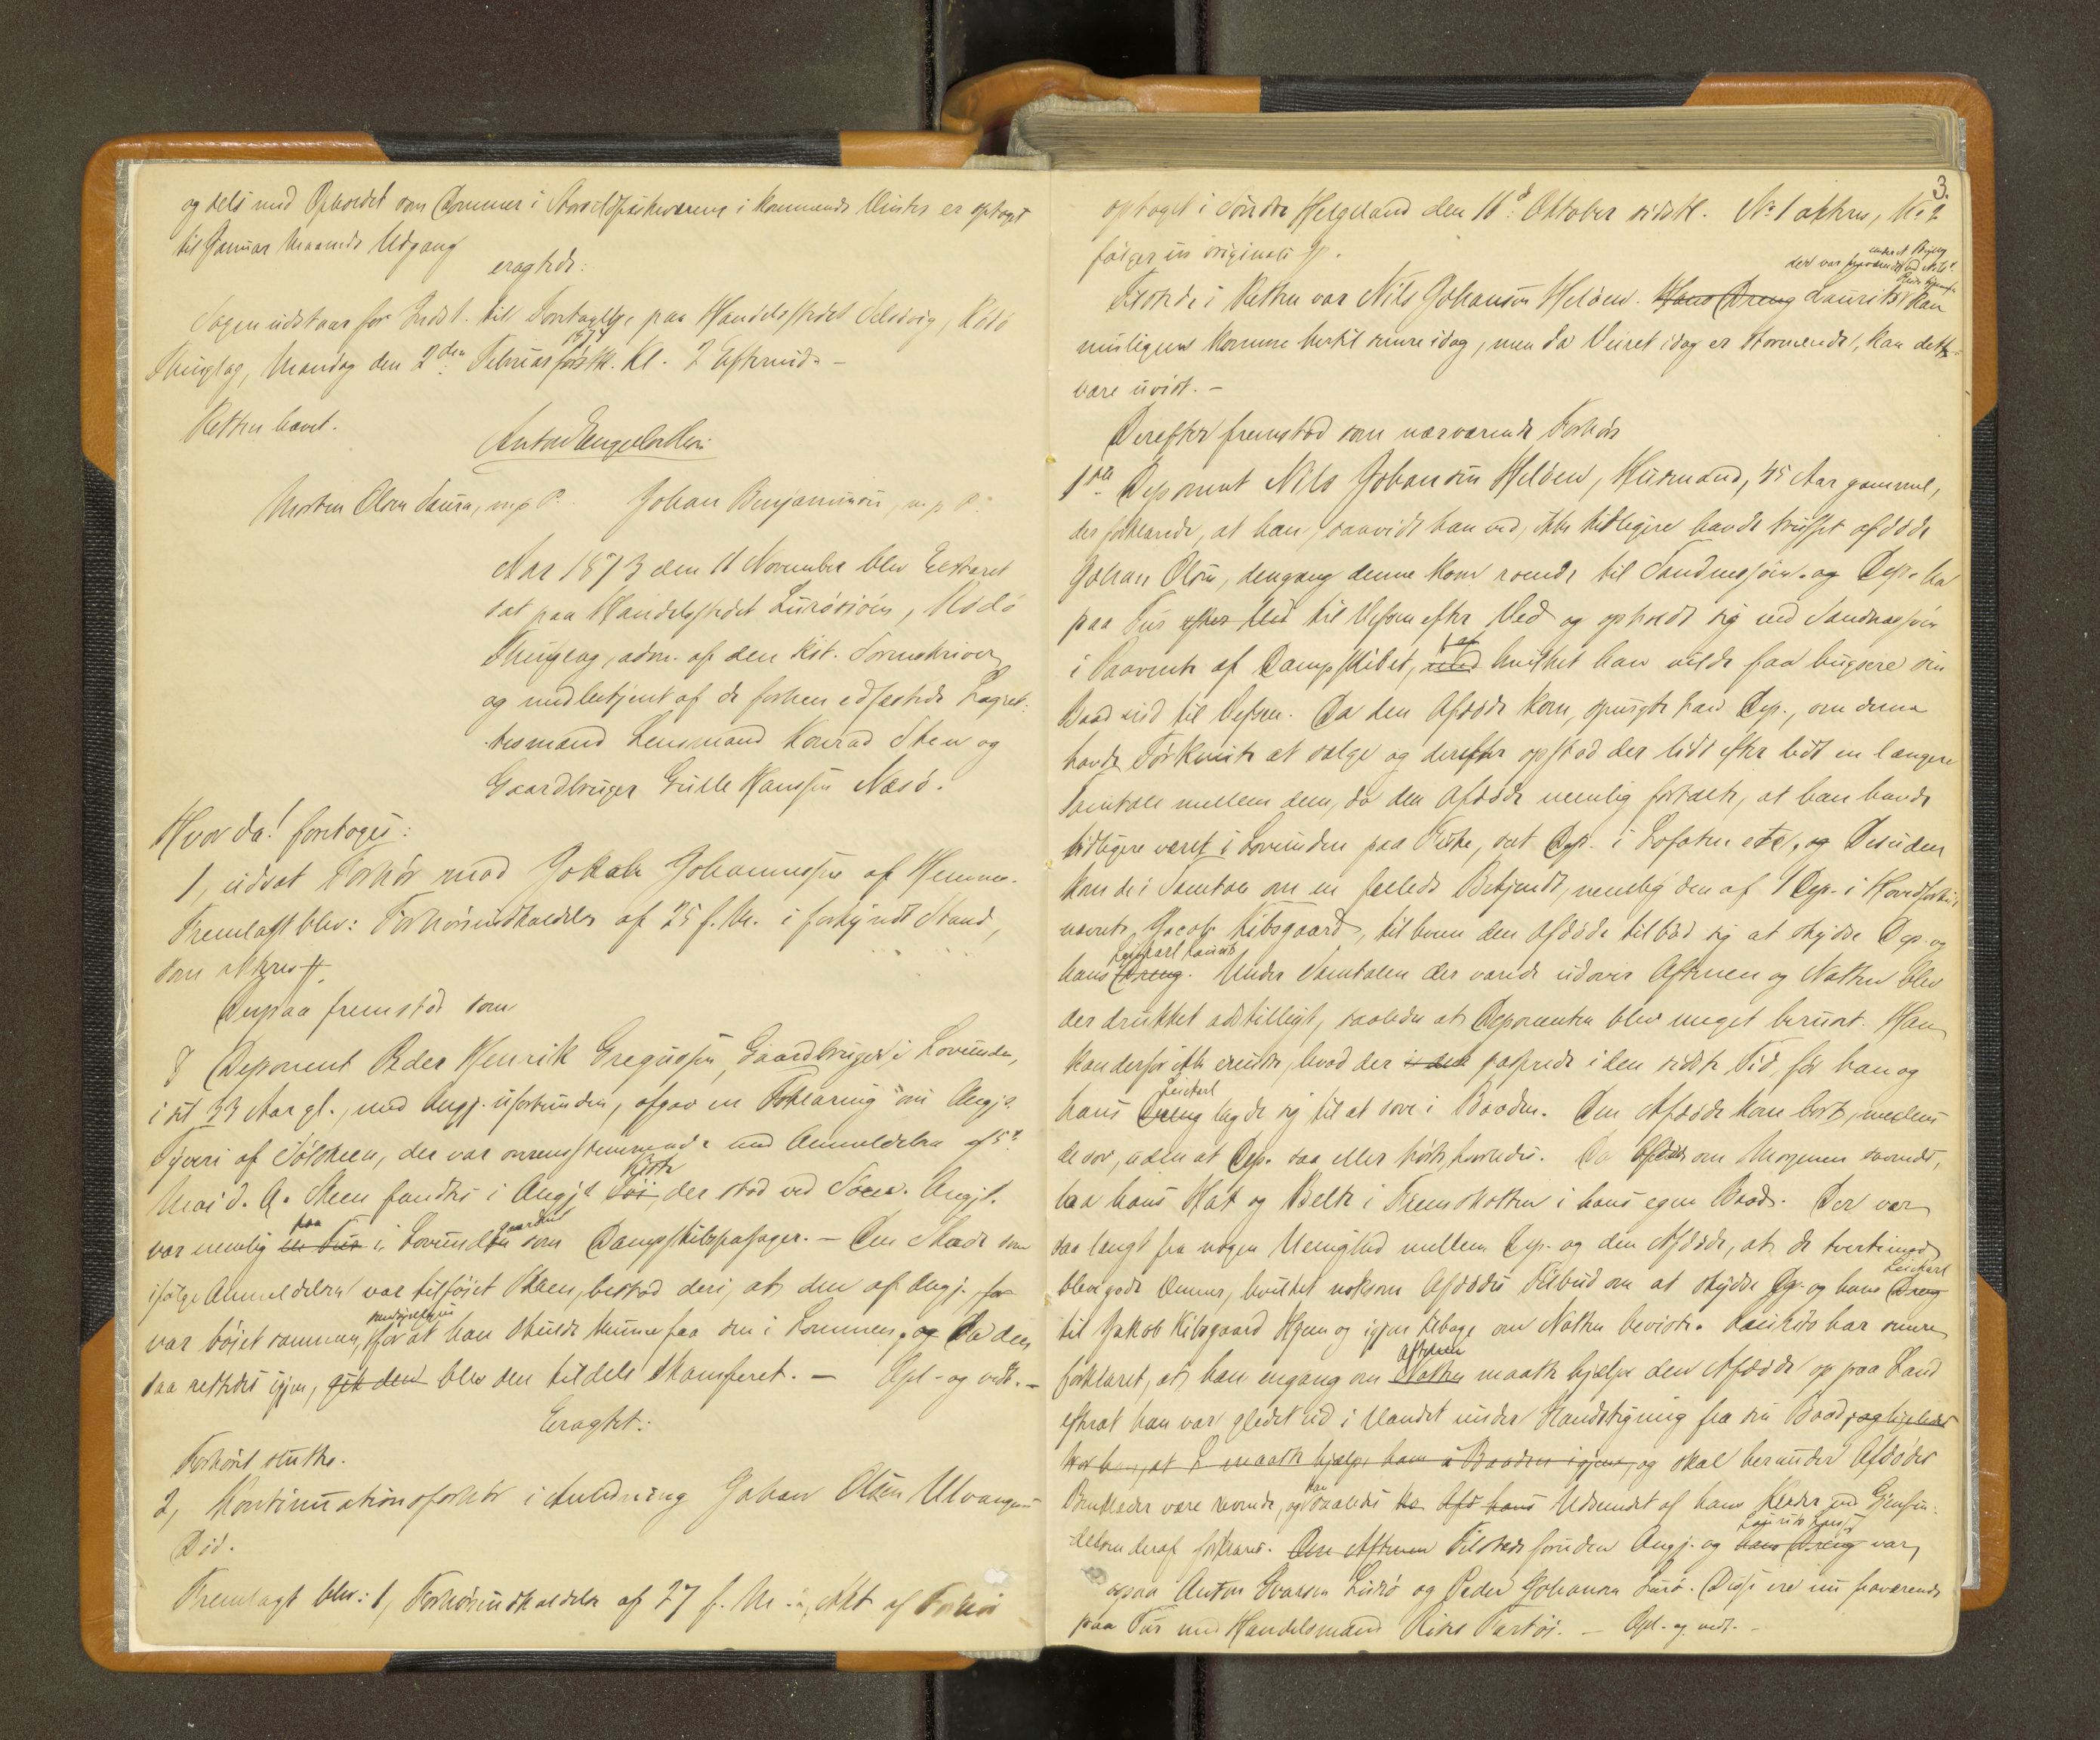 og dels med Opholdet som Dommer i Storsildfiskeværene i kommende Vinter er optaget
til Januar Maaneds Udgang
eragtede:
Sagen udstaar for Indst. til Foretagelse paa Handelsstedet Selsövig, Rödö
Thinglag, Mandag den 2den Februar 1874 førstk. Kl. 2 Eftermid. -
Retten hævet.
Anton Engelbrethsen
Morten Olsen Saura, m p P. Johan Benjaminsen, m p P.
Aar 1873 den 11 November blev Extraret
sat paa Handelsstedet Luröosiöen, Rödö
Thinglag, adm. af den kst. Sorenskriver
og medbetjent af de forhen edfæstede Lagret-
tesmænd Lensmand Konrad Steen og
Gaardbruger Gulle Hanssen Næsö.
Hvor da! foretoges:
1, udsat Forhör mod Jakob Johannessen af Hemnes.
Fremlagt blev: Forhörsindkaldelse af 25 f. M. i forkyndt Stand,
som aktres #.
Derpaa fremstod som
8 Deponent Peder Henrik Gregussen, Gaardbruger i Lovunden,
i sit 33 Aar gl., med Angj. uforbunden, afgav en Forklaring om Angj.s
Tyveri af Sölskeen, der var overensstemmende med Anmeldelsen af 5te
Mai d. A. Skeen fandtes i Angj.s Töi Kiste, der stod ved Söen. Angj.
var nemlig en Tur paa i Lovunden gaarden som Dampskibspassager. - Den Skade som
ifölge Anmeldelsen var tilföiet Skeen, bestod deri, at den af Angj. for
var böiet sammen, formodentlig for at han skulde kunne faa den i Lommen, og Da den
saa rettedes igjen, gik den blev den tildels skamferet. - Opl. og vedt. -
Eragtet:
Forhöret sluttes.
2, Kontinuationsforhör i Anledning Johan Olsen Ulvangens
Död.
Fremlagt blev: 1, Forhörsindkaldelse af 27 f. M. 2, Akt af Forhör
3.
optaget i söndre Helgeland den 16de Oktober sidstl. No 1 aktres, No 2
fölger in originali #.
Tilstede i Retten var Nils Johansen Helöen. Hans Dreng Laurits kan
muligens komme hertil senere idag, men da Veiret idag er stormende, kan dette
være uvist. -
Derefter fremstod som nærværende Forhörs
1ste Deponent Nils Johansen Helöen, Husmand, 45 Aar gammel,
der forklarede, at han, saavidt han ved, ikke tidligere havde truffet afdöde
Johan Olsen, dengang denne kom roende til Sandnessjöen. og Dep. var
paa Tur efter Ved til Vefsen efter Ved og opholdt sig ved Sandnessjöen
i Paavente af Dampskibet, med af hvilket han vilde faa bugsere sin
Baad ind til Vefsen. Da den Afdöde kom, spurgte han Dep., om denne
havde Törkvist at sælge og derefter opstod der lidt efter lidt en længere
Samtale mellem dem, da den Afdöde nemlig fortalte, at han havde
tidligere været i Lovunden paa Fiske, seet Dep. i Lofoten etc, og Desuden
kom de i Samtale om en fælleds Bekjendt, nemlig den af 1 Dep. i Hovedforhöret
nævnte Jacob Kibsgaard, til hvem den Afdöde tilböd sig at skydse Dep. og
hans Dreng Leiekarl Laurits. Under Samtalen der varede udover Aftenen og Natten blev
der drukket adskilligt, saaledes at Deponenten blev meget beruset. Han
kan derfor ikke erindre, hvad der i den passerede i den sidste Tid, för han og
hans Dreng Leiekarl lagde sig til at sove i Baaden. Den Afdöde kom bort, medens
de sov, uden at Dep. saa eller hörte hvorledes. Da Afdöde om Morgenen savnedes,
laa hans Hat og Belte i Fremskotten i hans egen Baad. Der var
saa langt fra nogen Uenighed mellem Dep. og den Afdöde, at de tvertimod
bleve gode Venner, hvilket noksom Afdödes Tilbud om at skydse Dep. og hans Dreng Leiekarl
til Jakob Kibsgaard Hjem og igjen tilbage om Natten beviste. Laurits har senere
forklaret, at han engang om Natten Aftenen maatte hjælpe den Afdöde op paa Land
efterat han var gledet ud i Vandet under Ilandstigning fra sin Baad, og ligeledes
at L maatte hjælpe ham i Baaden igjen, og skal herunder Afdödes
Buxklæder være revnede, og kan saaledes Udseendet af hans Klæder ved Gjenfin-
delsen deraf forklares. Den Aftenen Tilstede foruden Angj. og hans Dreng Laurits var
ogsaa Anton Ivarsen Lurö og Peder Johansen Lurö. Disse ere nu fraværende
paa Tur med Handelsmand Riises Fartöi. - Opl. og vedt. -